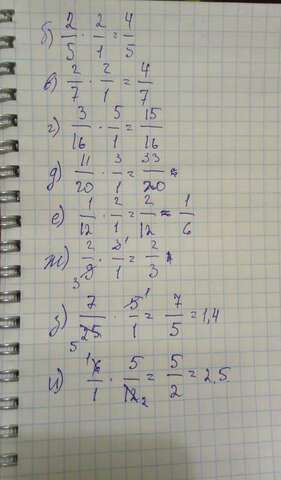 б) 2/5 · 2/1 = 4/5
в) 2/7 · 2/1 = 4/7
г) 3/16 · 5/1 = 15/16
д) 11/20 · 3/1 = 33/20
е) 1/12 · 2/1 = 2/12 = 1/6
ж) 2/9 3 · 3 1/1 = 2/3
з) 7/25 5 · 5 1/1 = 7/5 = 1,4
и) 1 6/1 · 5/12 2 = 5/2 = 2,5